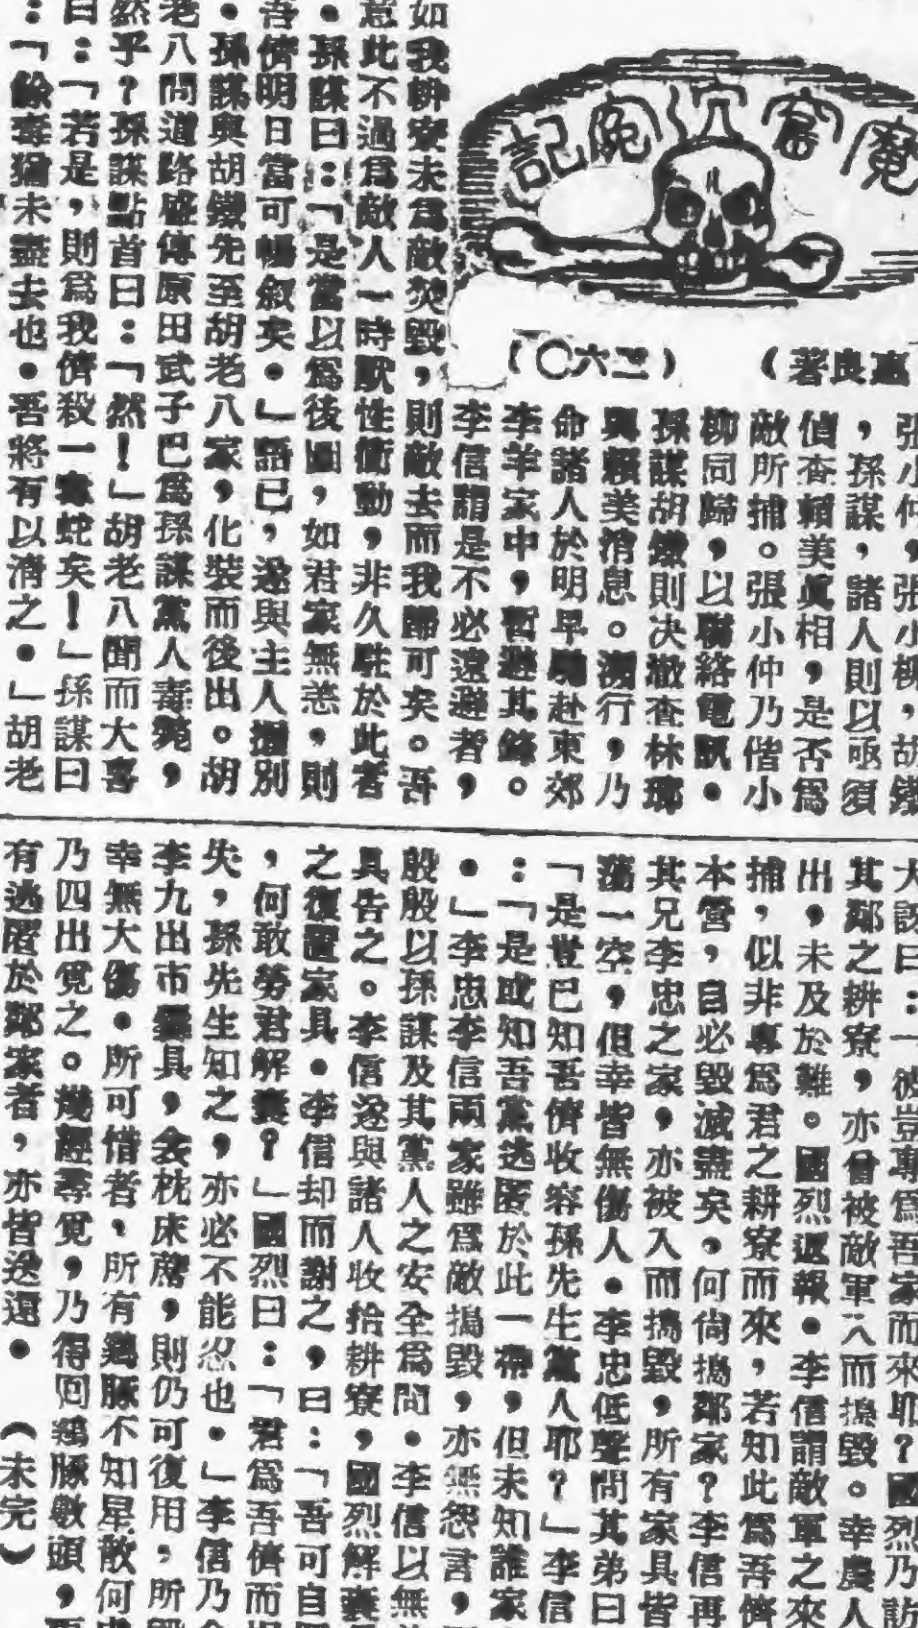 魔窟沉冤記
（二六〇）
惠良著）
張小仲，張小柳，胡鐵
，孫謀，諸人則以亟須
偵查賴美眞相，是否爲
敵所捕。張小仲乃偕小
柳同歸，以聯絡電訊。
孫謀胡鐵則决澈查林瑯
與賴美消息。瀕行，乃
命諸人於明早曉赴東郊
李羊家中，暫避其鋒。
李信謂是不必遠避者，
如我耕寮未爲敵焚毀，則敵去而我歸可矣。吾
意此不過爲敵人一時獸性衝動，非久駐於此者
。孫謀曰：「是當以爲後圖，如君家無恙，則
吾儕明日當可暢叙矣。」語已，遂與主人握別
。孫謀與胡鐵先至胡老八家，化裝而後出。胡
老八問道路盛傳原田武子巴爲孫謀黨人毒斃，
然乎？孫謀點首曰：「然！」胡老八聞而大喜
曰：「若是，則爲我儕殺一毒蛇矣！」孫謀曰
：「餘毒猶未盡去也。吾將有以清之。」胡老
大訝曰：「彼豈專爲吾家而來耶？國烈乃訪
其鄰之耕寮，亦曾被敵軍入而搗毀。幸農人
出，未及於難。國烈還報。李信謂敵軍之來
捕，似非專爲君之耕寮而來，若知此爲吾儕
本營，自必毀滅盡矣。何尙搗鄰家？李信再
其兄李忠之家，亦被入而搗毀，所有家具皆
蕩一空，但幸皆無傷人。李忠低聲問其弟曰
「是豈已知吾儕收容孫先生黨人耶？」李信
：「是或知吾黨逃匿於此一帶，但未知誰家
。」李忠李信兩家雖爲敵搗毀，亦無怨言，
殷殷以孫謀及其黨人之安全爲問。李信以無
具告之。李信遂與諸人收拾耕寮，國烈解囊
之復置家具。李信却而謝之，曰：「吾可自
，何敢勞君解囊？」國烈曰：「君爲吾儕而
失，孫先生知之，亦必不能忍也。」李信乃
李九出市爨具，衾枕床蓆，則仍可復用，所
幸無大傷。所可惜者，所有鷄豚不知星散何
乃四出覓之。幾經尋覓，乃得囘鷄豚數頭，
有逃匿於鄰家者，亦皆送還。　（未完）